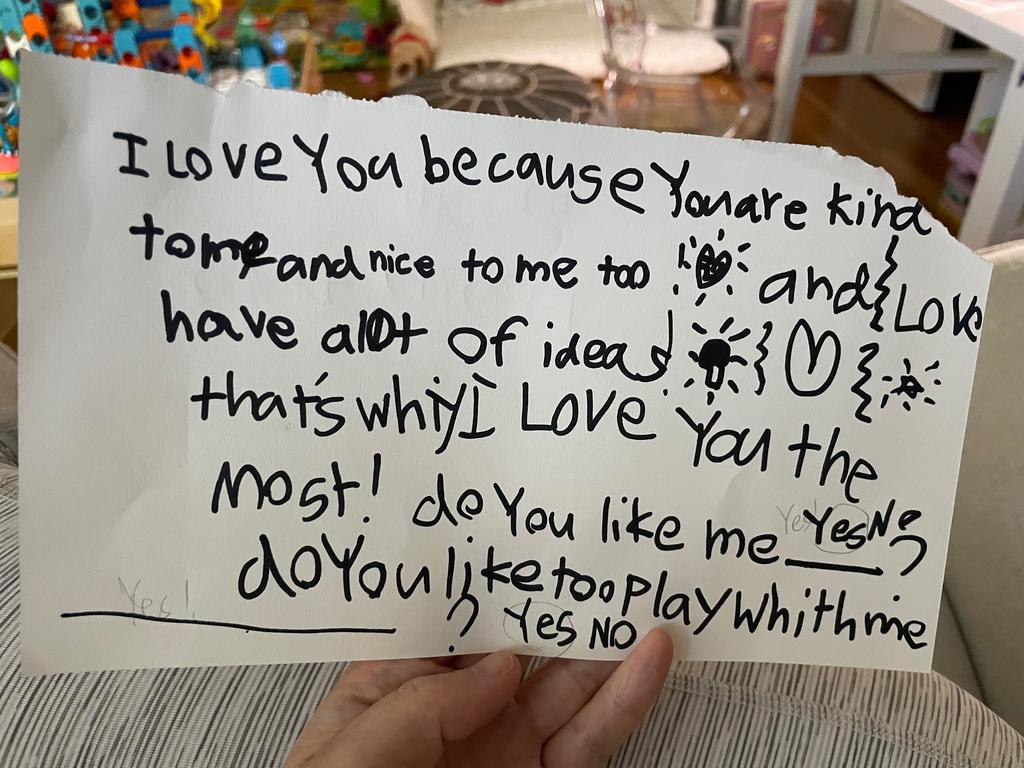 I Love You because You are kind
to me and nice to me too and Love
have alot of ideas!
that's whiy I Love You the
most! do You like me Yes! Yes No
doYou like too play whith me
Yes! ? Yes NO
?